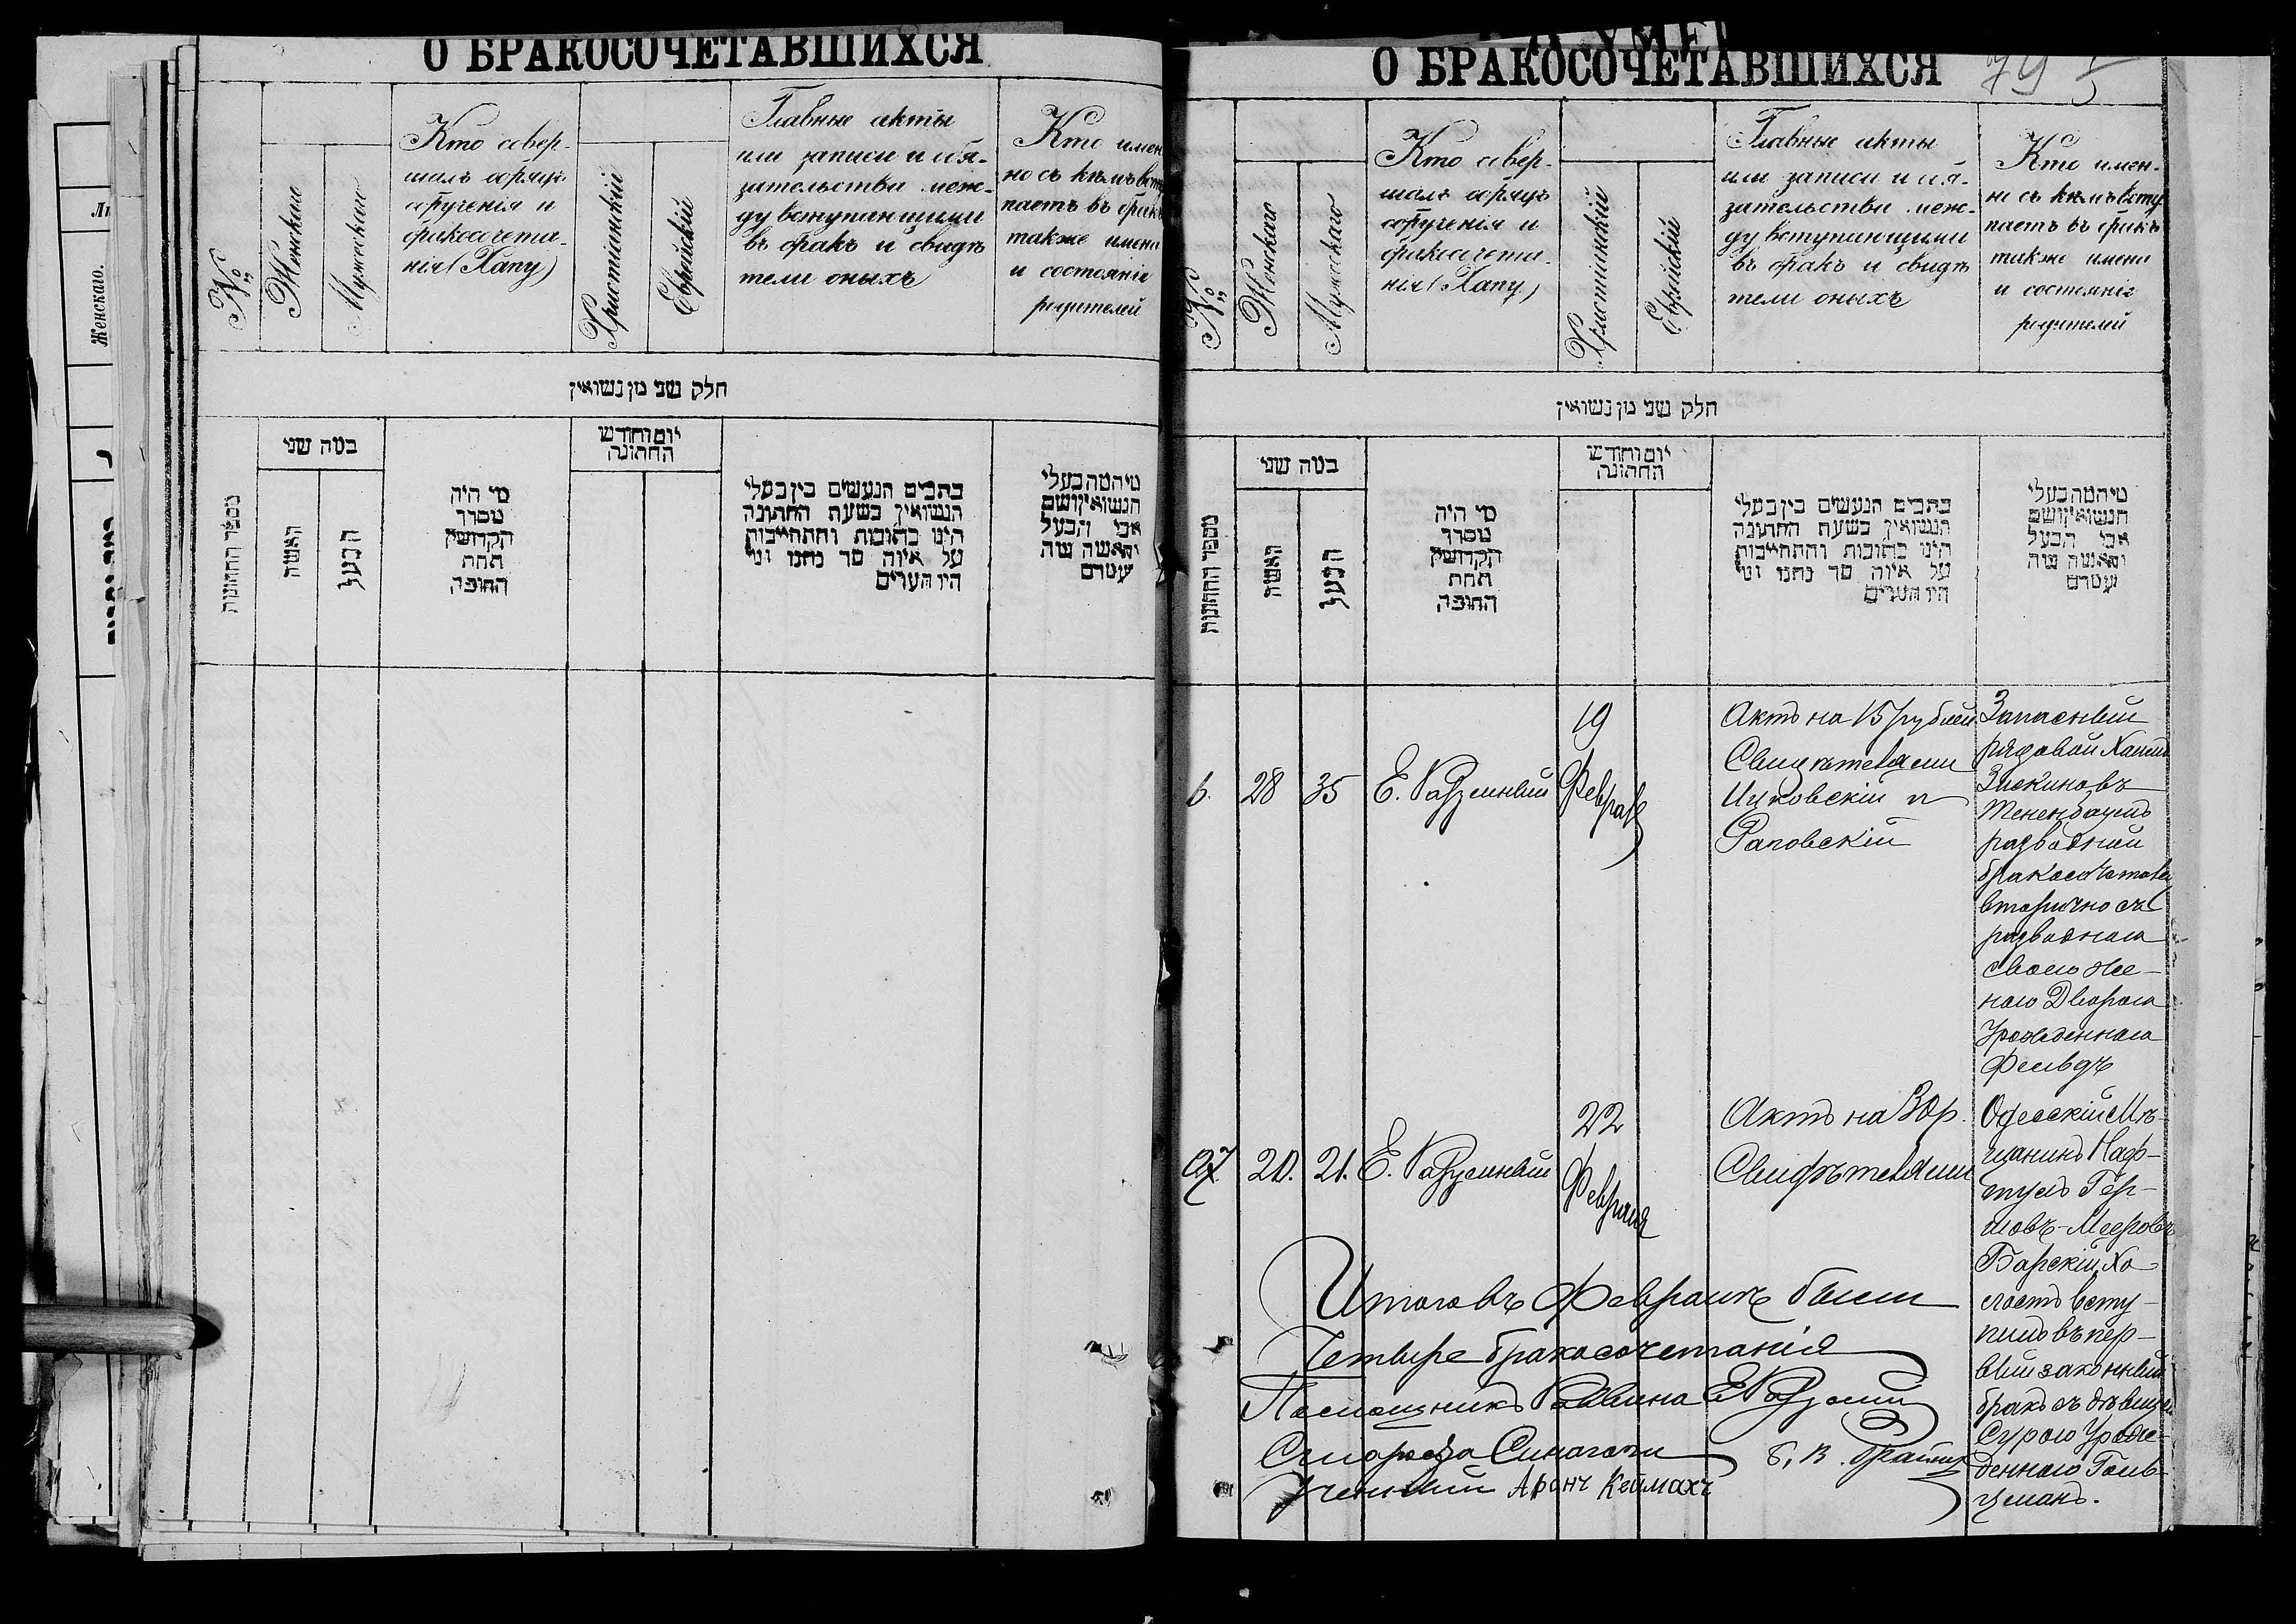 О БРАКОСОЧЕТАВШИХСЯ
№
Женскаго
Мужескаго
Кто совер-
шалъ обрядъ
обрученія и
бракосочета-
нія (Хапу)
Христіанскій
Еврейскій
Главные акты
или записи и обя-
зательства меж-
ду вступающими
въ бракъ и свидѣ
тели оныхъ
Кто имен
но съ кѣмъ всту
паетъ въ бракъ
также имена
и состояніе
родителей
חלק שני מן נשואין
מספר החתונות
במה שני
האשה
הבעל
מי היה
מסדר
הקדושין
תחת
החופה
יום וחודש
החתונה
כתבים הנעשים בין בעלי
הנשואין בשעת החתונה
היינו כתובות והתחייבות
על איזה סך נתנו ומי
היו העדים
מי המה בעלי
הנשואין ושם
אבי הבעל
והאשה ומה
עטרם
Женскаго.
О БРАКОСОЧЕТАВШИХСЯ
79
№
Женскаго
Мужескаго
Кто совер-
шалъ обрядъ
обрученія и
бракосочета-
нія (Хапу)
Христіанскій
Еврейскій
Главные акты
или записи и обя-
зательства меж-
ду вступающими
въ бракъ и свидѣ
тели оныхъ
Кто имен-
но съ кѣмъ всту
паетъ въ бракъ
также имена
и состояніе
родителей
חלק שני מן נשואין
מספר החתונות
במה שני
האשה
הבעל
מי היה
מסדר
הקדושין
תחת
החופה
יום וחודש
החתונה
כתבים הנעשים בין בעלי
הנשואין בשעת החתונה
היינו כתובות והתחייבות
על איזה סך נתנו ומי
היו העדים
מי המה בעלי
הנשואין ושם
אבי הבעל
והאשה ומה
עטרם
6. 28 35 Е. 19 Февраля
Актъ на 15 рублей
Свидѣтелями
и
Раповскій
Запасный
рядовой
Зискиновъ
Тененбаумъ
разводной
бракосочетался
вторично съ
разводною
своею же-
ною Дворою
Урожденною
Фельдъ
27. 20. 21. Е. 22 Февраля
Актъ на 30 р.
Свидѣтелями
Одесскій Мѣ-
щанинъ Наф-
тулъ Гер-
шовъ-Мееровъ
Барскій Хо-
лостъ всту-
пилъ въ пер-
вый законный
бракъ съ дѣвицею
Сурою Урож-
денною Голь-
цманъ.
Итого въ Февралѣ были
Четыре бракосочетанія
Помощникъ Раввина Е
Староста Синагоги
Ученый Аронъ Кеймахъ